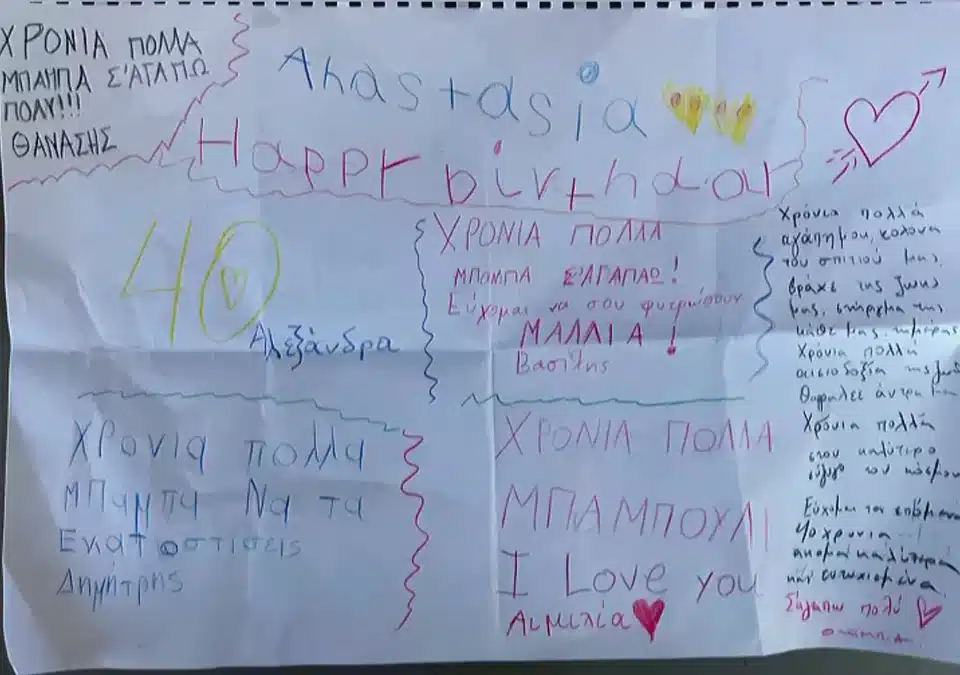 ΧΡΟΝΙΑ ΠΟΛΛΑ
ΜΠΑΜΠΑ Σ'ΑΓΑΠΩ
ΠΟΛΥ!!!
ΘΑΝΑΣΗΣ
Anastasia
Happy birthday
40
Αλεξάνδρα
ΧΡΟΝΙΑ ΠΟΛΛΑ
ΜΠΟΜΠΑ Σ'ΑΓΑΠΑΩ!
Εύχομαι να σου φυτρώσουν
ΜΑΛΛΙΑ!
Βασίλης
Χρονια πολλα
μπαμπα Να τα
Εκατοστισεις
Δημήτρης
ΧΡΟΝΙΑ ΠΟΛΛΑ
ΜΠΑΜΠΟΥΛΙ
I Love you
Αιμιλία
Χρόνια πολλά
αγάπη μου, κολόνα
του σπιτιού μας,
βράχε της ζωής
μας, στήριγμα της
κάθε μας ημέρας
Χρόνια πολλά
αισιοδοξία της
άντρα μου
Χρόνια πολλά
στον καλύτερο
σύζυγο του κόσμου
Εύχομαι τα επόμενα
40 χρονια
ακομα καλύτερα
και ευτυχισμένα
Σ'αγαπω πολύ